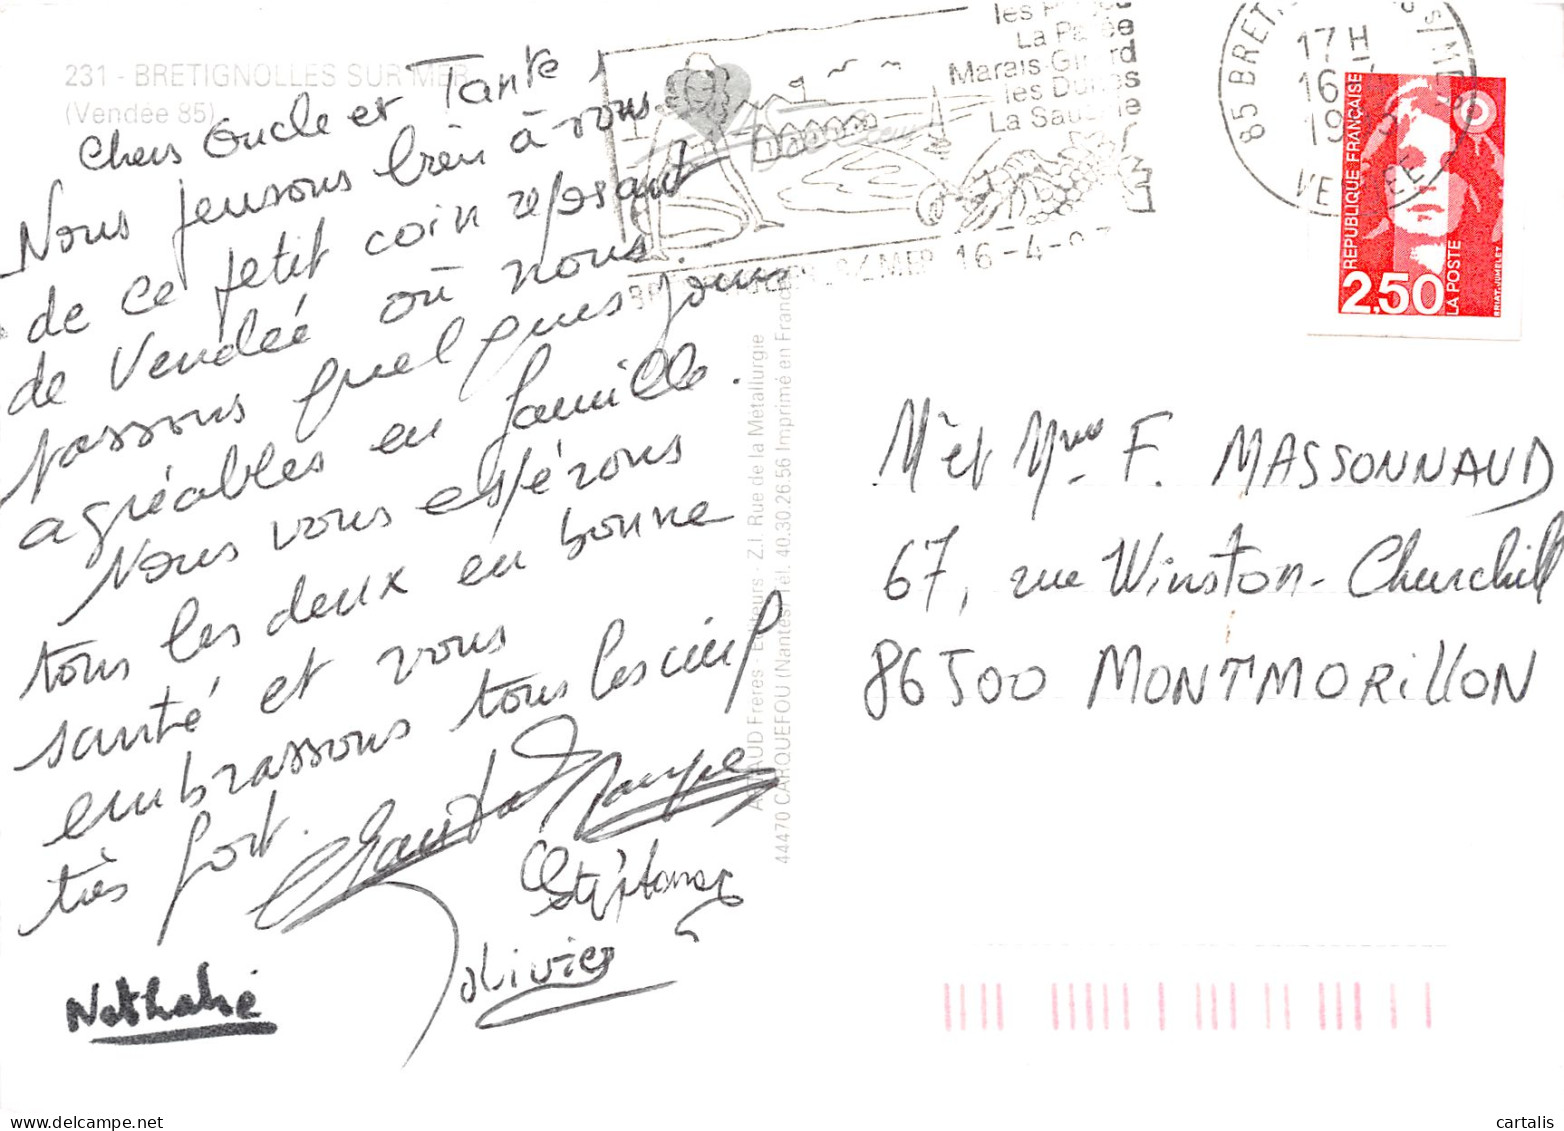 231 - BRETIGNOLLES SUR MER
(Vendée 85)
Chers Oncle et Tante
Nous pensons bien à vous
de ce petit coin reposant
de Vendée où nous
passons quelques jours
agréables en famille.
Nous vous espérons
tous les deux en bonne
santé et vous
embrassons tous les cinq
très fort.
Stéphane
Olivier
Nathalie
La Parée
Marais Girard
les Dunes
La Sauzaie
16-4-
85 BRET
17H
16
19
VENDEE
REPUBLIQUE FRANÇAISE
2,50
LA POSTE
Frères - Editeurs - Z.I. Rue de la Métallurgie
44470 CARQUEFOU (Nantes) Tél. 40.30.26.56 Imprimé en France
Mr et Mme F. MASSONNAUD
67, rue Winston-Churchill
86500 MONTMORILLON
cartalis